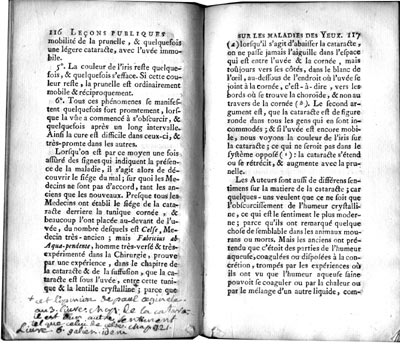 116 LEÇONS PUBLIQUES
mobilité de la prunelle, & quelquefois
une légere cataracte, avec l'uvée immo-
bile.
5°. La couleur de l'iris reste quelque-
fois, & quelquefois s'efface. Si cette cou-
leur reste, la prunelle est ordinairement
mobile & réciproquement.
6°. Tous ces phénomenes se manifes-
tent quelquefois fort promtement, lors-
que la vûe a commencé à s'obscurcir, &
quelquefois après un long intervalle.
Ainsi la cure est difficile dans ceux-ci, &
très-promte dans les autres.
Lorsqu'on est par ce moyen une fois
assûré des signes qui indiquent la présen-
ce de la maladie, il s'agit alors de dé-
couvrir le siége du mal; sur quoi les Me-
decins ne sont pas d'accord, tant les an-
ciens que les nouveaux. Presque tous les
Medecins ont établi le siége de la cata-
racte derriere la tunique cornée, &
beaucoup l'ont placée au-devant de l'u-
vée, du nombre desquels est Celse, Me-
decin très-ancien; mais Fabricius ab
Aqua-pendente, homme très-versé & très-
expérimenté dans la Chirurgie, prouve
par une expérience, dans le chapitre de
la cataracte & de la suffusion, que la ca-
taracte est sous l'uvée, entre cette tuni-
que & la lentille crystalline; parce que
+ et l'opinion de paul
au 3. livre chap. de la
il est d'un autre sentiment
tel que celui de celse chap
Livre 6. galien idem
SUR LES MALADIES DES YEUX. 117
(a) lorsqu'il s'agit d'abaisser la cataracte,
on ne passe jamais l'aiguille dans l'espace
qui est entre l'uvée & la cornée, mais
toûjours vers ses côtés, dans le blanc de
l'œil, au-dessous de l'endroit où l'uvée se
joint à la cornée, c'est-à-dire, vers les
bords où se trouve la choroïde, & non au
travers de la cornée (b). Le second ar-
gument est, que la cataracte est de figure
ronde dans tous les gens qui en sont in-
commodés; & si l'uvée est encore mobi-
le, nous voyons la couleur de l'iris sur
la cataracte; ce qui ne seroit pas dans le
système opposé (1): la cataracte s'étend
ou se rétrécit, & augmente avec la pru-
nelle.
Les Auteurs sont aussi de différens sen-
timens sur la matiere de la cataracte; car
quelques-uns veulent que ce ne soit que
l'obscurcissement de l'humeur crystalli-
ne, ce qui est le sentiment le plus moder-
ne; parce qu'ils ont remarqué quelque
chose de semblable dans les animaux mou-
rans ou morts. Mais les anciens ont pré-
tendu que c'étoit des parties de l'humeur
aqueuse, coagulées ou disposées à la con-
crétion, trompés par les expériences où
ils ont vu que l'humeur aqueuse saine
pouvoit se coaguler ou par la chaleur ou
par le mélange d'un autre liquide, com-